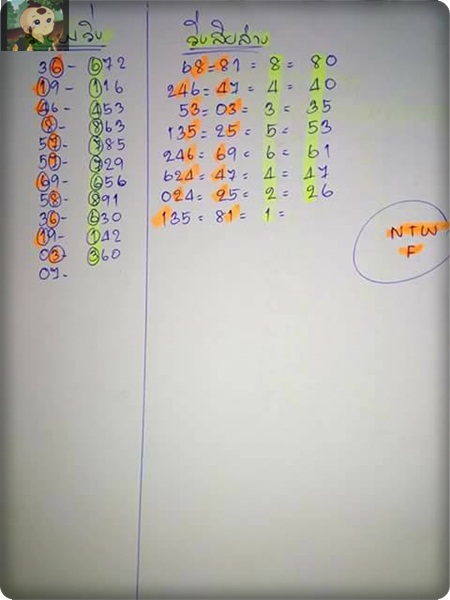 วิ่ง
36- 672
19- 116
46- 453
8- 863
57- 785
57- 729
69- 656
58- 891
36- 630
19- 142
03- 360
07-
วิ่งสิบล่าง
68=81=8=80
246=47=4=40
53=03=3=35
135=25=5=53
246=69=6=61
624=47=4=47
024=25=2=26
135=81=1=
NTW
F